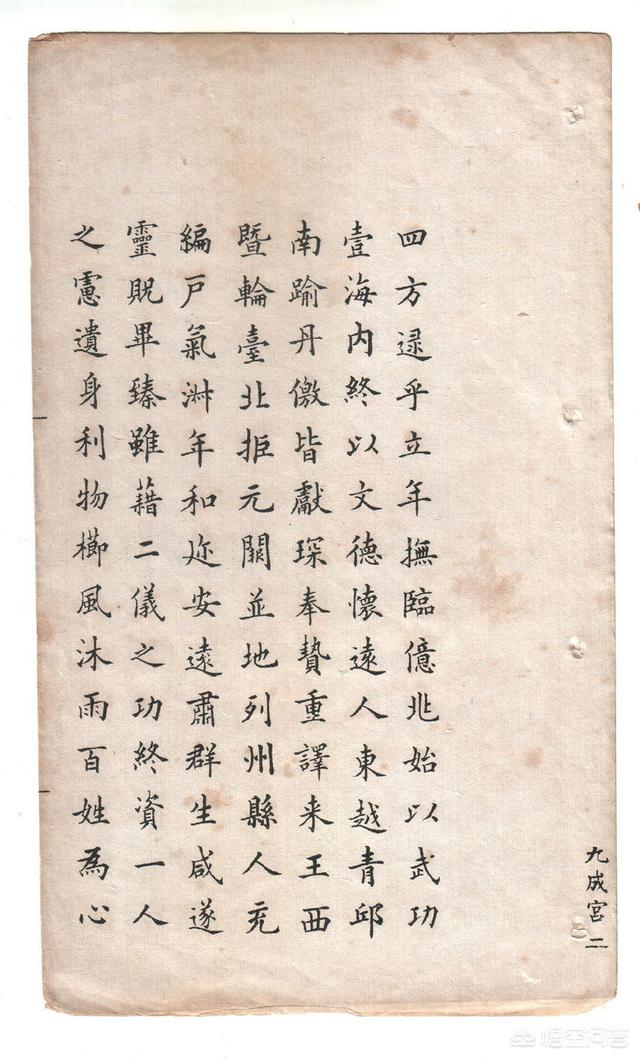 四方逯乎立年撫臨億兆始以武功
壹海内終以文德懷遠人東越青邱
南踰丹儌皆獻琛奉贄重譯来王西
暨輪臺北拒元闕並地列州縣人充
編戸氣淋年和迩安遠肅群生咸遂
靈貺畢臻雖藉二儀之功終資一人
之慮遺身利物櫛風沐雨百姓為心
九成宮二
悟空问答